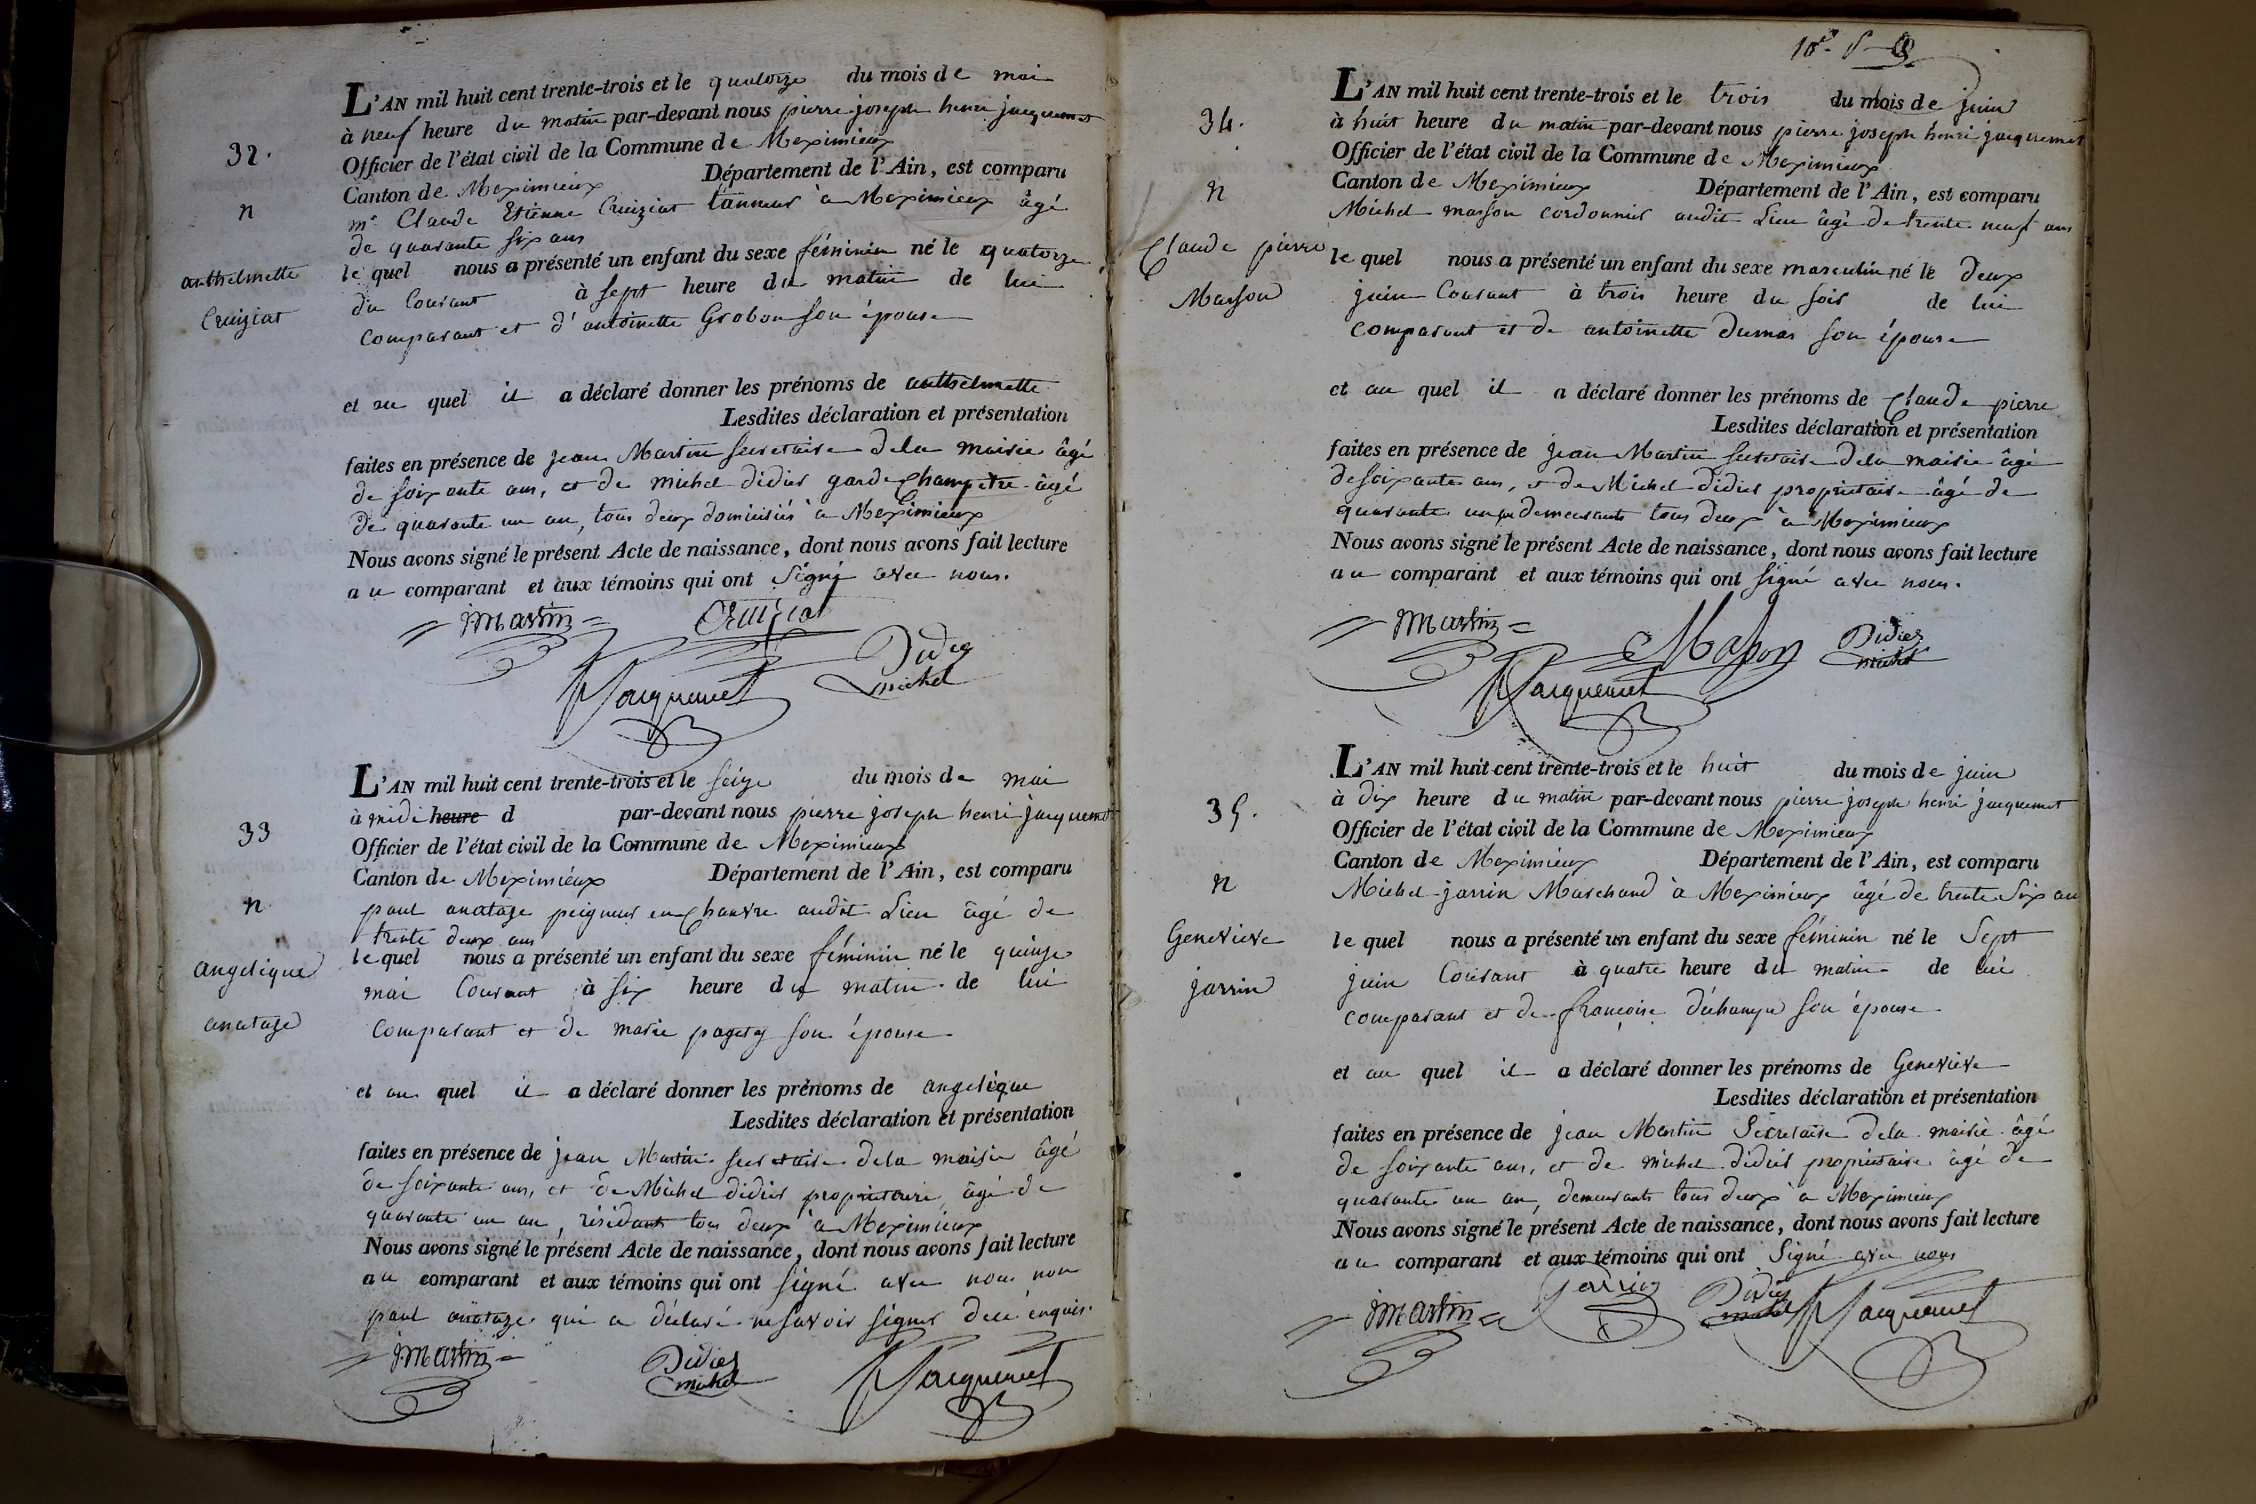 32.
n
anthelmette
Cruiziat
L'AN mil huit cent trente-trois et le quatorze du mois de mai
à neuf heure du matin par-devant nous pierre joseph henri jacquemet
Officier de l'état civil de la Commune de Meximieux
Canton de Meximieux Département de l'Ain, est comparu
mr Claude Etienne Cruiziat tanneur à Meximieux âgé
de quarante six ans
le quel nous a présenté un enfant du sexe féminin né le quatorze
du Courant à sept heure du matin de lui
comparant et d'antoinette Grobon son épouse
et au quel il a déclaré donner les prénoms de anthelmette
Lesdites déclaration et présentation
faites en présence de jean Martin secretaire dela mairie âgé
de soixante ans, et de michel didier garde champetre âgé
de quarante un an, tous deux domiciliés à Meximieux
Nous avons signé le présent Acte de naissance, dont nous avons fait lecture
au comparant et aux témoins qui ont signé avec nous.
JMartin
Cruiziat
Jacquemet
Didier
michel
33
n
angelique
anataze
L'AN mil huit cent trente-trois et le seize du mois de mai
à midi heure d par-devant nous pierre joseph henri jacquemet
Officier de l'état civil de la Commune de Meximieux
Canton de Meximieux Département de l'Ain, est comparu
paul anataze peigneur en chanvre audit Lieu âgé de
trente deux ans
le quel nous a présenté un enfant du sexe féminin né le quinze
mai Courant à six heure du matin de lui
comparant et de marie son épouse
et au quel il a déclaré donner les prénoms de angelique
Lesdites déclaration et présentation
faites en présence de jean Martin secretaire dela mairie âgé
de soixante ans, et de Michel didier propriétaire âgé de
quarante un an, résidants tous deux à Meximieux
Nous avons signé le présent Acte de naissance, dont nous avons fait lecture
au comparant et aux témoins qui ont signé avec nous non
paul anataze qui a déclaré ne savoir signer de ce enquis.
JMartin
Didier
michel
Jacquemet
34.
n
Claude pierre
Masson
L'AN mil huit cent trente-trois et le trois du mois de juin
à huit heure du matin par-devant nous pierre joseph henri jacquemet
Officier de l'état civil de la Commune de Meximieux
Canton de Meximieux Département de l'Ain, est comparu
Michel masson cordonnier audit Lieu âgé de trente neuf ans
le quel nous a présenté un enfant du sexe masculin né le deux
juin Courant à trois heure du soir de lui
comparant et de antoinette dumas son épouse
et au quel il a déclaré donner les prénoms de Claude pierre
Lesdites déclaration et présentation
faites en présence de jean Martin secretaire dela mairie âgé
de soixante ans, et de Michel didier propriétaire âgé de
quarante un an demeurants tous deux à Meximieux
Nous avons signé le présent Acte de naissance, dont nous avons fait lecture
au comparant et aux témoins qui ont signé avec nous.
JMartin
Masson
Didier
michel
Jacquemet
35.
n
Genevieve
jarrin
L'AN mil huit cent trente-trois et le huit du mois de juin
à dix heure du matin par-devant nous pierre joseph henri jacquemet
Officier de l'état civil de la Commune de Meximieux
Canton de Meximieux Département de l'Ain, est comparu
Michel jarrin Marchand à Meximieux âgé de trente six an
le quel nous a présenté un enfant du sexe féminin né le Sept
juin Courant à quatre heure du matin de lui
comparant et de françoise son épouse
et au quel il a déclaré donner les prénoms de Genevieve
Lesdites déclaration et présentation
faites en présence de jean Martin Secretaire dela mairie âgé
de soixante ans, et de michel didier propriétaire âgé de
quarante un an, demeurants tous deux à Meximieux
Nous avons signé le présent Acte de naissance, dont nous avons fait lecture
au comparant et aux témoins qui ont Signé avec nous
JMartin
Jarrin
Didier
michel
Jacquemet